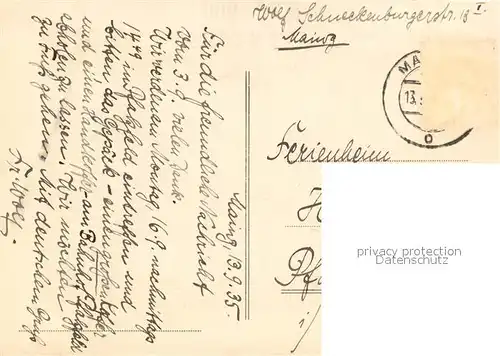 Wolf Schneckenburgerstr. 13 I.
Mainz
MA
13.
Ferienheim
H
Pfa
i/
privacy protection
Datenschutz
Mainz, 13.9.35
Für die freundliche Nachricht
vom 3.9. vielen Dank.
Wir werden am Montag 16.9. nachmittags
1449 in Pfalzfeld eintreffen und
bitten das Gepäck - einen großen Koffer
und einen Handkoffer am Bahnhof Pfalzfeld
abholen zu lassen. Wir möchten
zu Fuß gehen. Mit deutschem Gruß
Fr. Wolf.